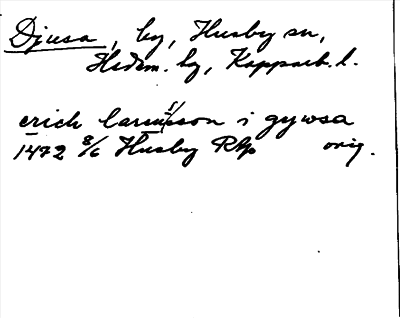 Djusa, by, Husby sn,
Hedem. hg, Kopparb. l.
erich larensson i gywsa
1472 8/6 Husby RAp orig.